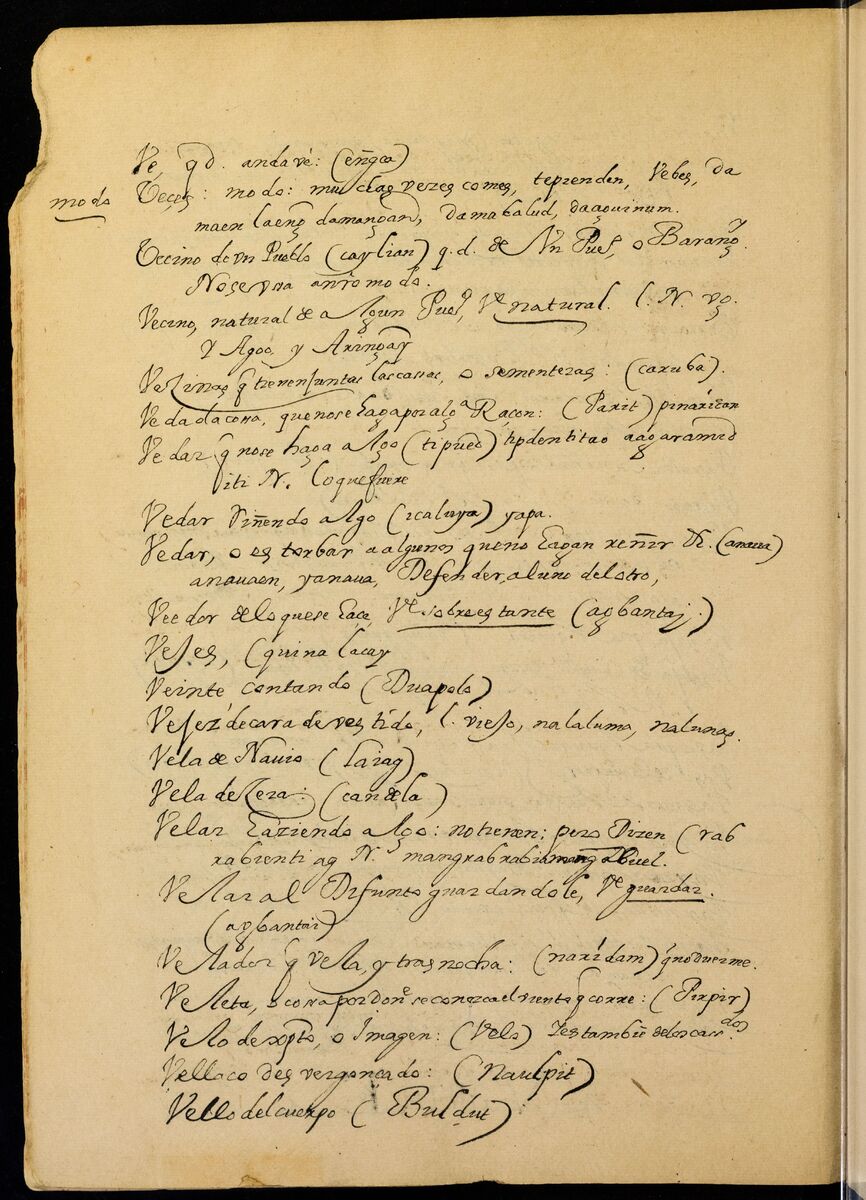 Vé, q̃ d. anda vé: (eñgca)
modo
Veçes: modo: muchas vezes comes, teprenden, Vebes, da
maen laeng damangan, damabalud, daaquinum.
Vecino de vn Pueblo (caylian) q. d. de N̄ Puel, o Barang̃y.
No se vsa otro modo.
Vecino, natural de algun Pueº, Vᵉ natural. l. N.
Y Agoo. y Aringay
Vezinas q̃ tienen juntas las casas, o sementeras: (caruba).
Vedada cosa, que no se haga por algª Raçon: (Parit) pinaritan
Vedar q̃ no se haga algo (tipũed) tipdentitao aagaramid
iti N. Loquefuere
Vedar Riñendo algo (icaluya) yapa.
Vedar, o estorbar a algunos que no hagan reñir Vᵉ. (anaua)
anauaen, yanaua, Defender, al uno del otro,
Veedor de lo que se haçe, Vᵉ sobrestante (agbantaj.)
Vejes, (quina lacay
Veinte contando (Duapolo)
Vejez de cara de vestido, l. viejo, nalaluma, nalunas.
Vela de Navio (laiag)
Vela de Zera: (candela)
Velar haziendo algo: no tienen; pero Dizen (rab
rabienti ag N. mangrabrabii
Velar al Difunto guardandole, Vᵉ guardar.
(agbantai)
Velador q̃ vela, y trasnocha: (narídam) q̃ no duerme.
Veleta, o cossa por donᵉ se conozca el viento q̃ corre: (Pirpir)
Velo de xp̃to, o Imagen: (Velo) Yes tambiẽ de los cassados.
Vellaco desvergonçado: (Naulpit)
Vello del cuerpo (Buldut)